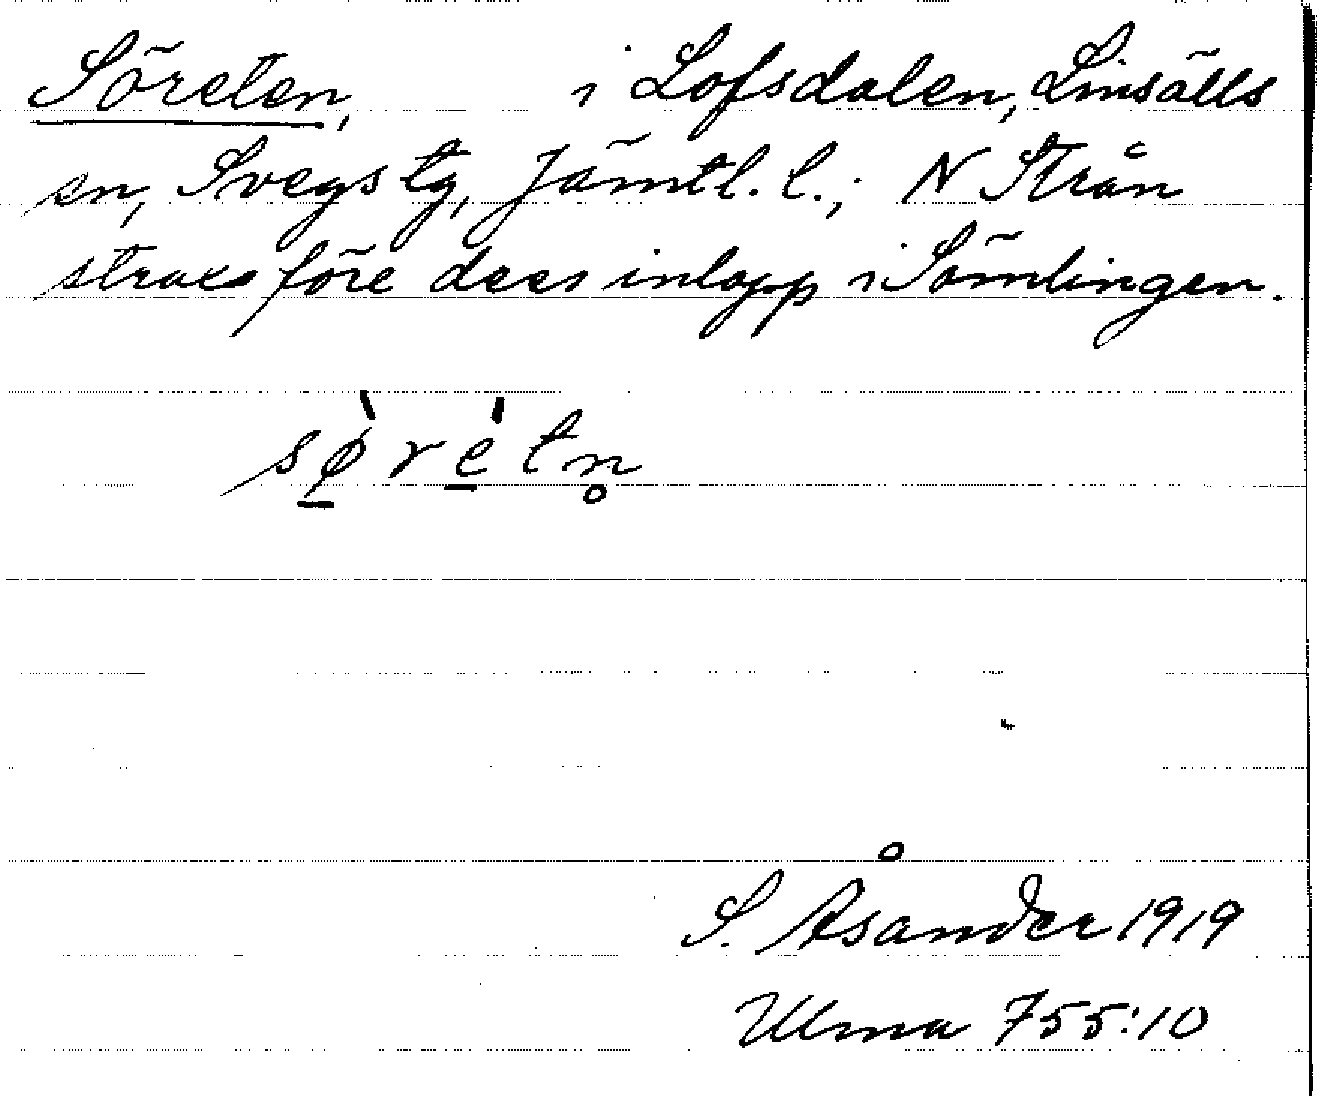 Söreten, i Lofsdalen, Linsälls
sn, Svegs tg, Jämtl. l.; N Strån
straxs före dess inlopp i Sömlingen.
sø̠̀ré̠tn̥
S. Åsander 1919
Ulma 755:10